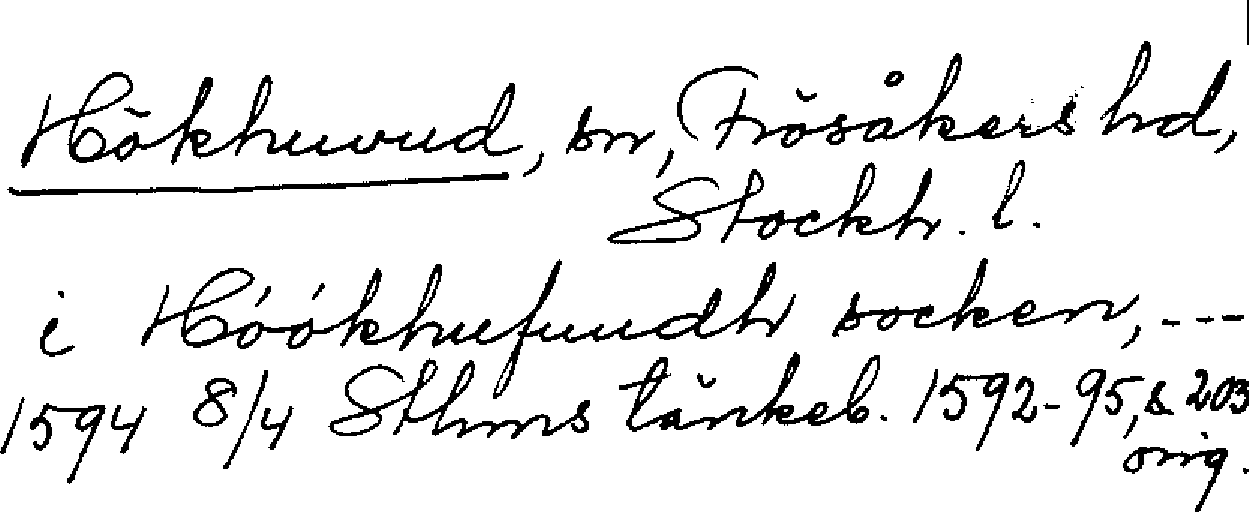 Hökhuvud, sn, Frösåkers hd,
Stockh. l.
i Hóókhufuudh socken, ---
1594 8/4 Sthms tänkeb. 1592-95, s. 203
orig.